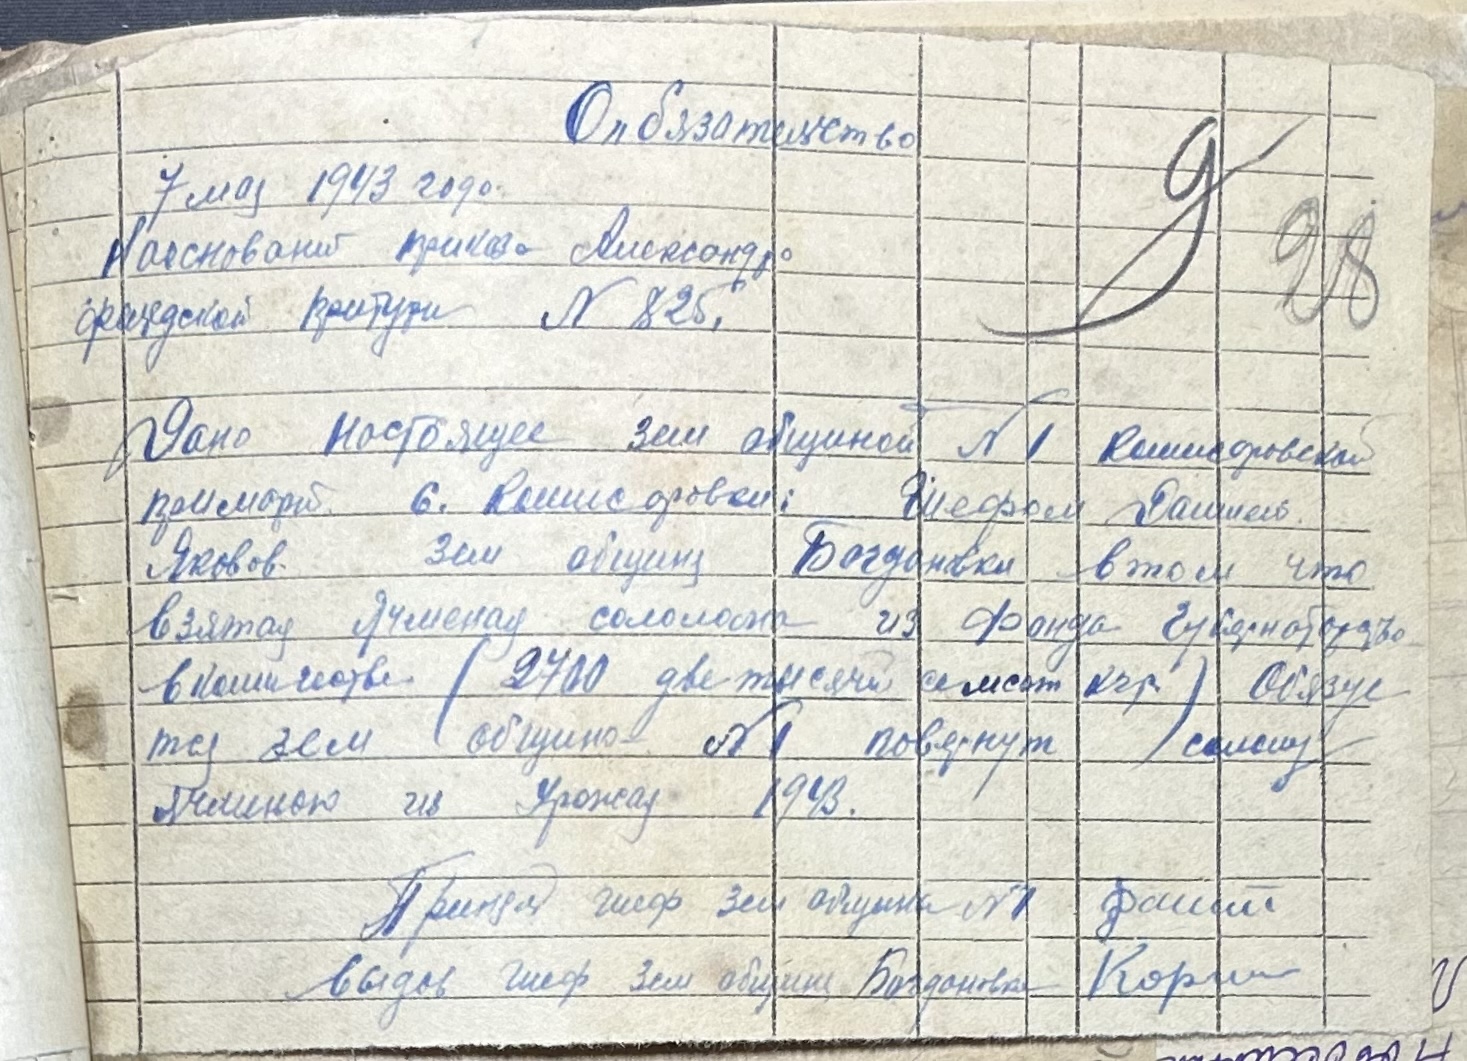 Обязательство
9
28
7 мая 1943 годо.
Наоснований приказа Александро
фендской претури № 825.
Дано настоящее зем общиной № 1 Комисаровской
примарй. с. Комисаровки: Шефом
Яковов. зем общины Богдановки втом что
взятая Ячменая из фонда
вколичестве (2700 две тысячи семсот кгр) Обязуе
тся зем общино № 1 повернут солому
Ячменою из Урожая 1943.
Принял шеф зем общины № 1
выдов шеф зем общины Богдановки